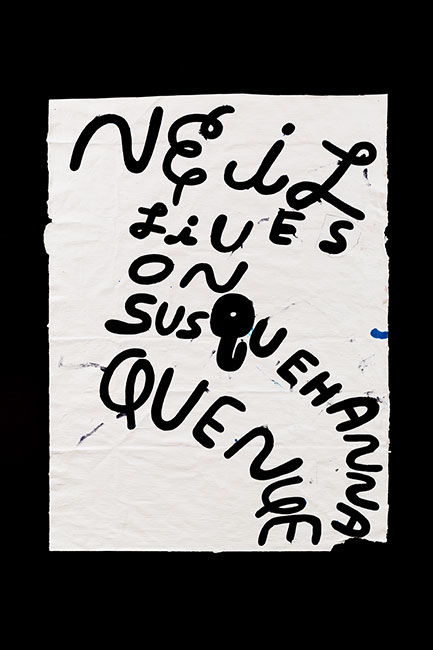 NEiL
LiVES
ON
SUSQUEHANNA
QUENUE